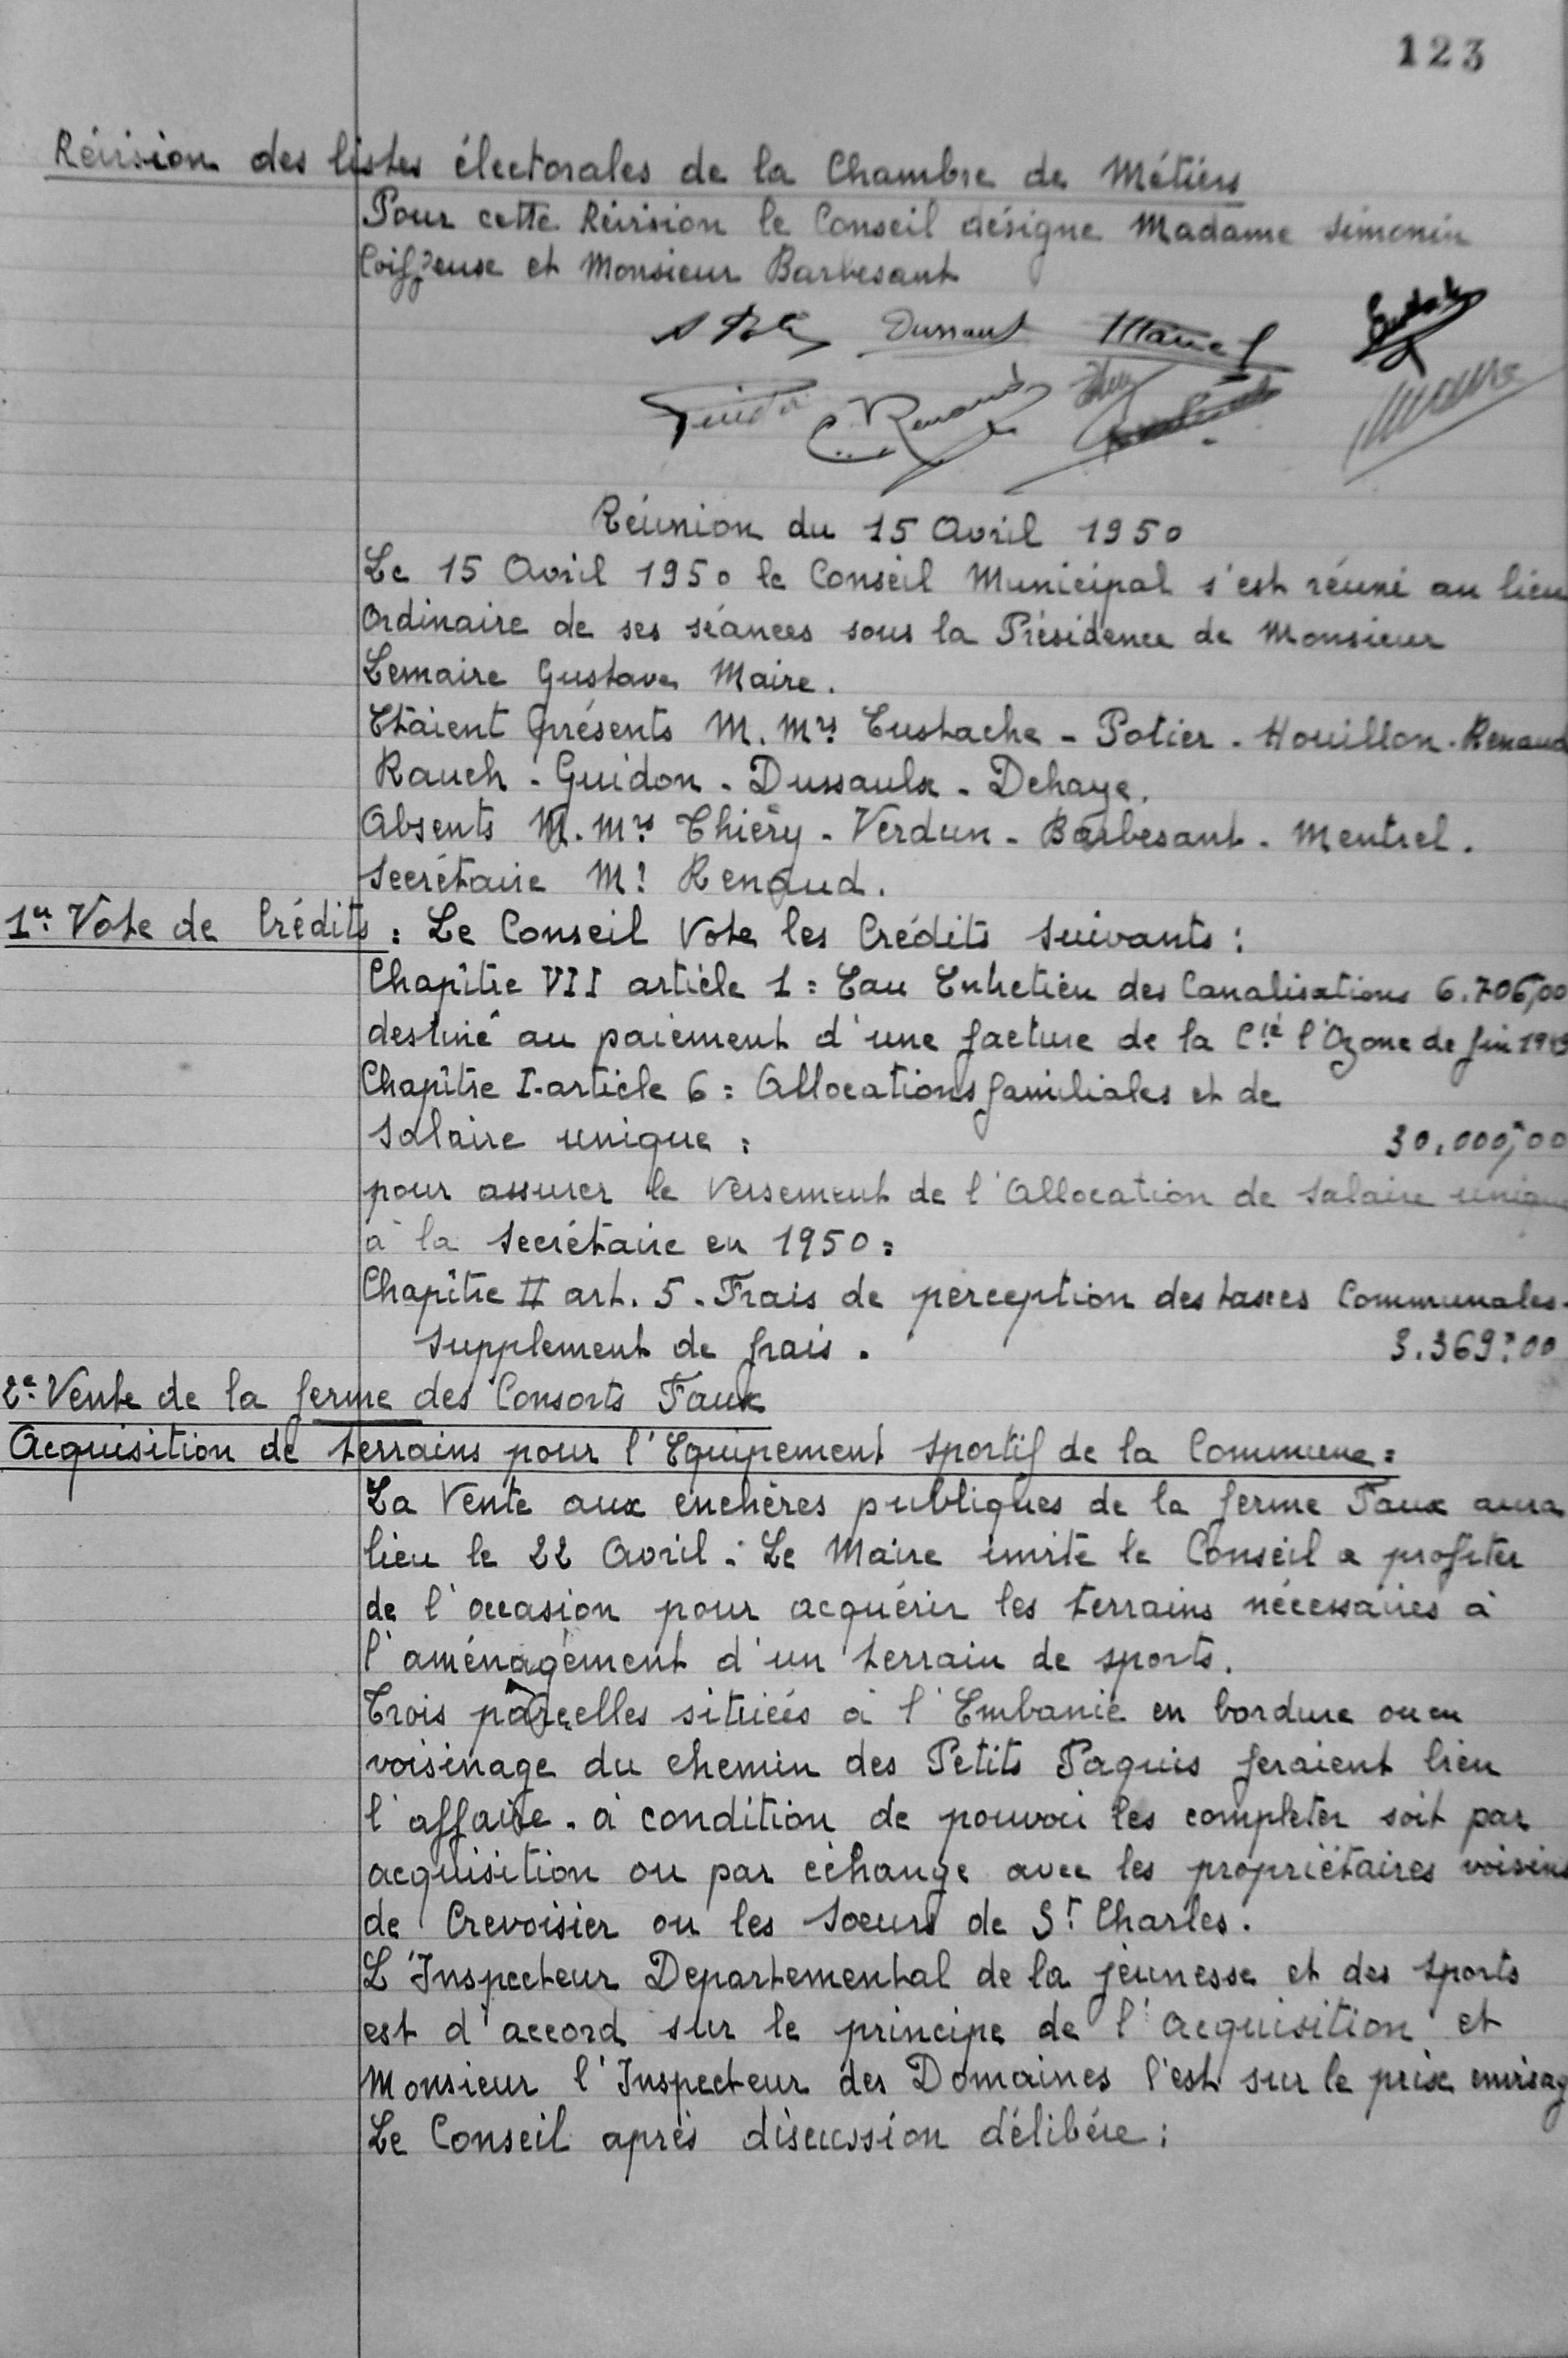 123
Révision des listes électorales de la Chambre de Métiers
Pour cette Révision le Conseil désigne Madame Simonin
Coiffeuse et Monsieur Barbesant
Dussault
C. Renaud
Réunion du 15 Avril 1950
Le 15 Avril 1950 le Conseil Municipal s'est réuni au lieu
Ordinaire de ses séances sous la Présidence de Monsieur
Lemaire Gustave Maire.
Etaient présents M. Mrs Eustache - Potier - Houillon - Renaud
Rauch - Guidon - Dussaulx - Dehaye.
Absents M. Mrs Thiéry - Verdun - Barbesant - Mentrel.
Secrétaire Mr Renaud.
1er Vote de Crédits : Le Conseil Vote les Crédits suivants :
Chapître VII article 1 : Eau Entretien des Canalisations 6.706,00
destiné au paiement d'une facture de la Cie l'Ozone de fin 1949
Chapître I-article 6 : Allocations familiales et de
Salaire unique : 30.000,00
pour assurer le Versement de l'Allocation de Salaire unique
à la Secrétaire en 1950 :
Chapître II art. 5 - Frais de perception des taxes Communales -
Supplement de frais. 3.369,00
2e Vente de la ferme des Consorts Faux
Acquisition de terrains pour l'Equipement Sportif de la Commune :
La Vente aux enchères publiques de la ferme Faux aura
lieu le 22 Avril. Le Maire invite le Conseil a profiter
de l'occasion pour acquérir les terrains nécessaires à
l'aménagement d'un terrain de sports.
Trois parcelles situées à l'Embanie en bordure ou en
voisinage du chemin des Petits Paquis feraient bien
l'affaire. à condition de pouvoir les completer soit par
acquisition ou par échange avec les propriétaires voisins
de Crevoisier ou les Soeurs de St Charles.
L'Inspecteur Departemental de la jeunesse et des Sports
est d'accord sur le principe de l'acquisition et
Monsieur l'Inspecteur des Domaines l'est sur le prix envisag
Le Conseil après discussion délibére :